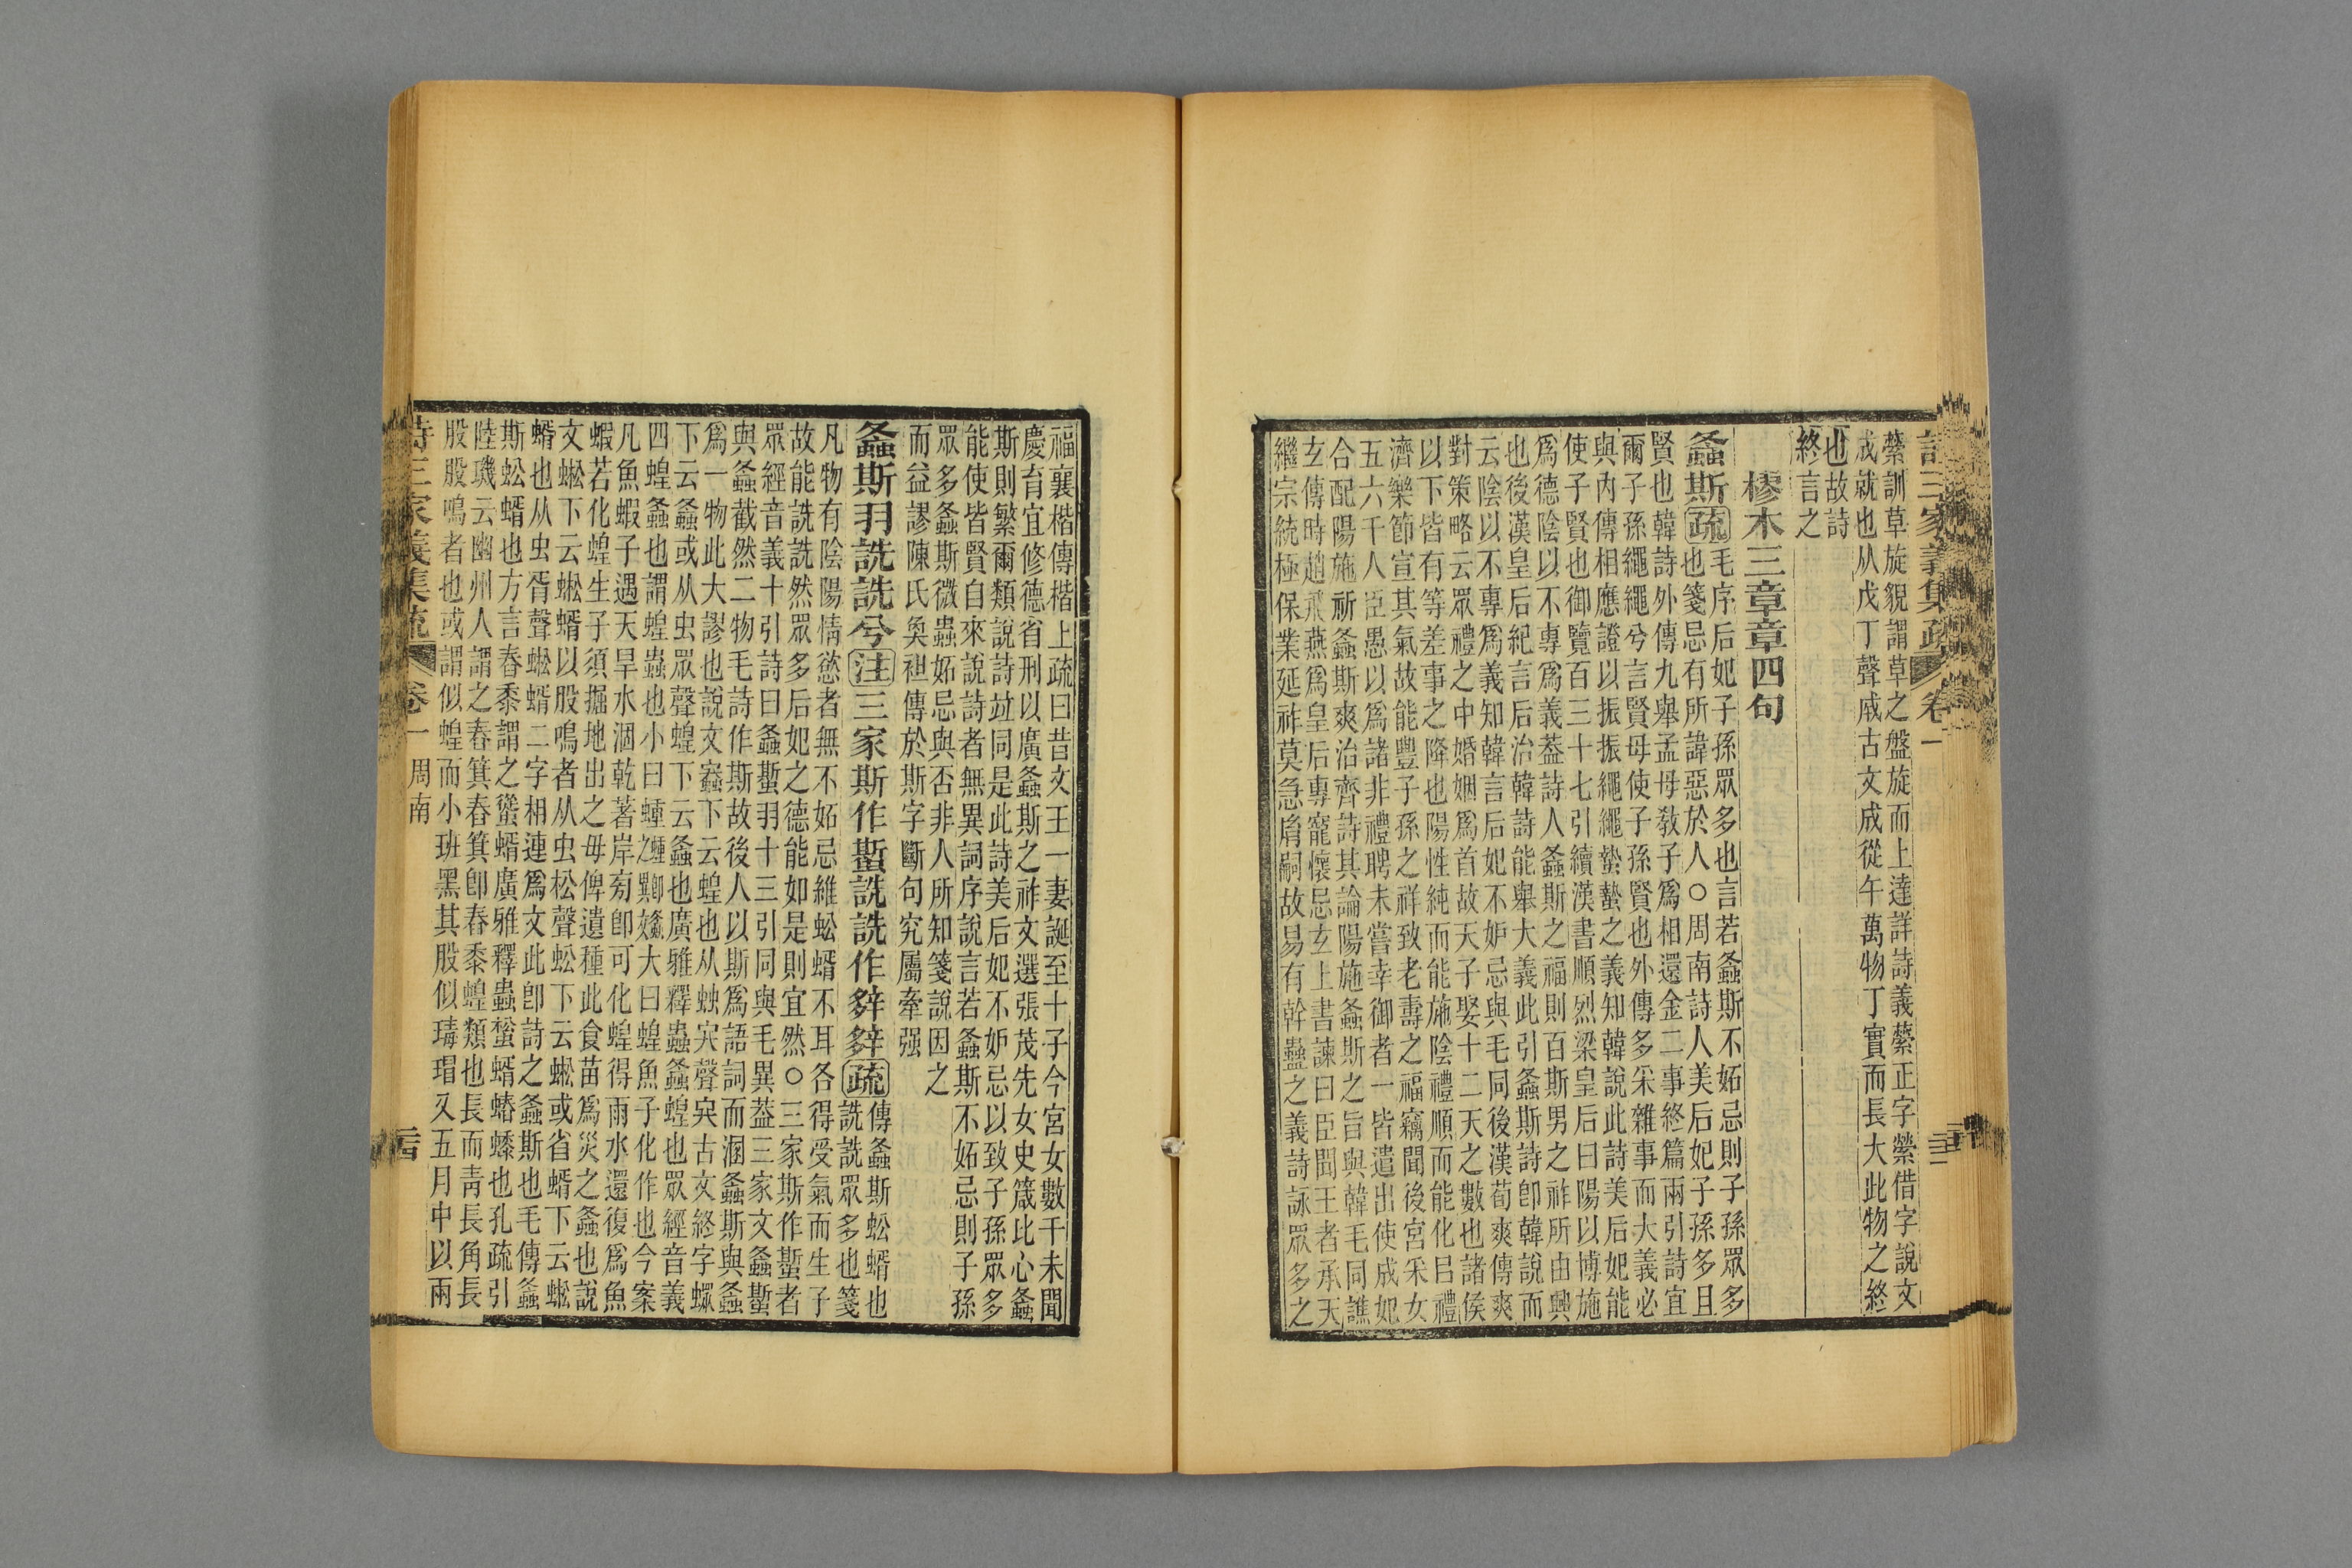 縈訓草旋貌謂草之盤旋而上達詳詩義縈正字褮借字說文
成就也从戊丁聲戚古文成從午萬物丁實而長大此物之終
也故詩
終言之
樛木三章章四句
螽斯疏毛序后妃子孫眾多也言若螽斯不妬忌則子孫眾多
也箋忌有所諱惡於人○周南詩人美后妃子孫多且
賢也韓詩外傳九舉孟母敎子爲相還金二事終篇兩引詩宜
爾子孫繩繩兮言賢母使子孫賢也外傳多采雜事而大義必
與內傳相應證以振振繩繩蟄蟄之義知韓說此詩美后妃能
使子賢也御覽百三十七引續漢書順烈梁皇后曰陽以博施
爲德陰以不專爲義葢詩人螽斯之福則百斯男之祚所由興
也後漢皇后紀言后治韓詩能舉大義此引螽斯詩卽韓說而
云陰以不專爲義知韓言后妃不妒忌與毛同後漢荀爽傳爽
對策略云眾禮之中婚姻爲首故天子娶十二天之數也諸侯
以下皆有等差事之降也陽性純而能施陰禮順而能化㠯禮
濟樂節宣其氣故能豐子孫之祥致老壽之福竊聞後宮采女
五六千人臣愚以爲諸非禮聘未嘗幸御者一皆遣出使成妃
合配陽施祈螽斯爽治齊詩其論陽施螽斯之旨與韓毛同譙
玄傳時趙飛燕爲皇后專寵懷忌玄上書諫曰臣聞王者承天
繼宗統極保業延祚莫急胤嗣故易有幹蠱之義詩詠眾多之
福襄楷傳楷上疏曰昔文王一妻誕至十子今宮女數千未聞
慶育宜修德省刑以廣螽斯之祚文選張茂先女史箴比心螽
斯則繁爾類說詩竝同是此詩美后妃不妒忌以致子孫眾多
能使皆賢自來說詩者無異詞序說言若螽斯不妬忌則子孫
眾多螽斯微蟲妬忌與否非人所知箋說因之
而益謬陳氏奐袒傳於斯字斷句究屬牽强
螽斯羽詵詵兮注三家斯作蜤詵詵作㚞㚞疏傳螽斯蚣蝑也
詵詵眾多也箋
凡物有陰陽情慾者無不妬忌維蚣蝑不耳各得受氣而生子
故能詵詵然眾多后妃之德能如是則宜然○三家斯作蜤者
眾經音義十引詩曰螽蜤羽十三引同與毛異葢三家文螽蜤
與螽截然二物毛詩作斯故後人以斯爲語詞而溷螽斯與螽
爲一物此大謬也說文螽下云蝗也从䖵宎聲宎古文終字螺
下云螽或从虫眾聲蝗下云螽也廣雅釋蟲螽蝗也眾經音義
四蝗螽也謂蝗蟲也小曰蝩之蝩卽螽大曰蝗魚子化作也今案
凡魚蝦子遇天旱水涸乾著岸旁卽可化蝗得雨水還復爲魚
蝦若化蝗生子須掘地出之毋俾遺種此食苗爲災之螽也說
文蜙下云蜙蝑以股鳴者从虫松聲蚣下云蜙或省蝑下云蜙
蝑也从虫胥聲蜙蝑二字相連爲文此卽詩之螽斯也毛傳螽
斯蚣蝑也方言舂黍謂之蜙蝑廣雅釋蟲蜙蝑蝽䗥也孔疏引
陸璣云幽州人謂之舂箕舂箕卽舂黍蝗類也長而靑長角長
股股鳴者也或謂似蝗而小班黑其股似瑇瑁又五月中以兩
詩三家義集疏 卷一 周南
詩三家義集疏 卷一